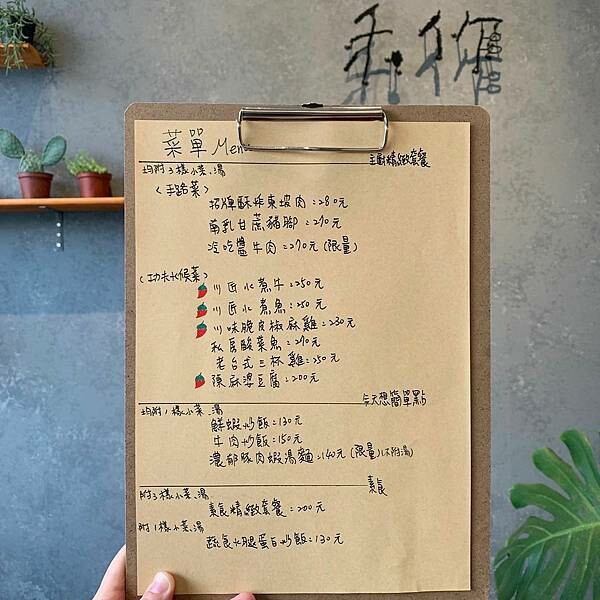 菜單 Menu
主廚精緻套餐
均附3樣小菜.湯
(手路菜)
招牌酥炸東坡肉:280元
南乳甘蔗豬腳:270元
冷吃鹽牛肉:270元(限量)
(功夫火候菜)
川匠水煮牛:250元
川匠水煮魚:250元
川味脆皮椒麻雞:230元
私房酸菜魚:270元
老台式三杯雞:250元
陳麻婆豆腐:200元
今天想簡單點
均附1樣小菜.湯
鮮蝦炒飯:130元
牛肉炒飯:150元
濃郁豚肉蝦湯麵:140元(限量)(不附湯)
素食
附3樣小菜.湯
素食精緻套餐:200元
附1樣小菜.湯
蔬食火腿蛋白炒飯:130元